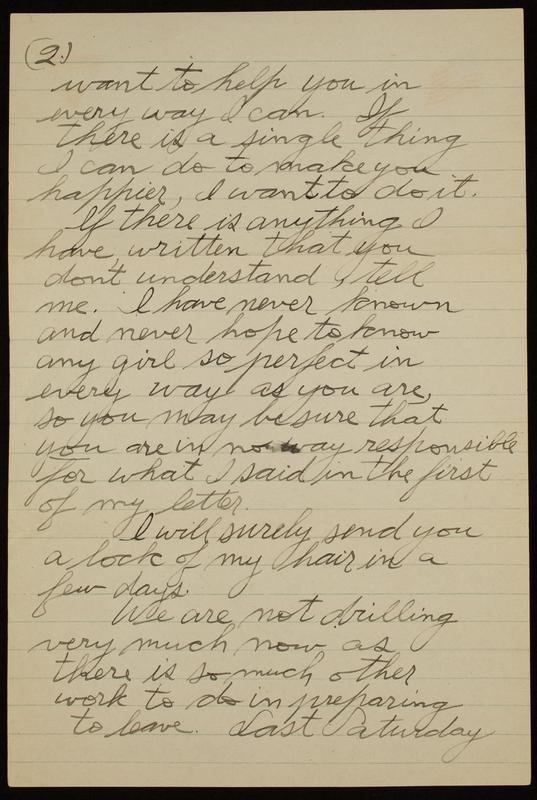 (2.)
want to help you in
every way I can. If
there is a single thing
I can do to make you
happier, I want to do it.
If there is anything I
have written that you
don't understand, tell
me. I have never known
and never hope to know
any girl so perfect in
every way as you are,
so you may be sure that
you are in no way responsible
for what I said in the first
of my letter.
I will surely send you
a lock of my hair in a
few days.
We are not drilling
very much now as
there is so much other
work to do in preparing
to leave. Last Saturday